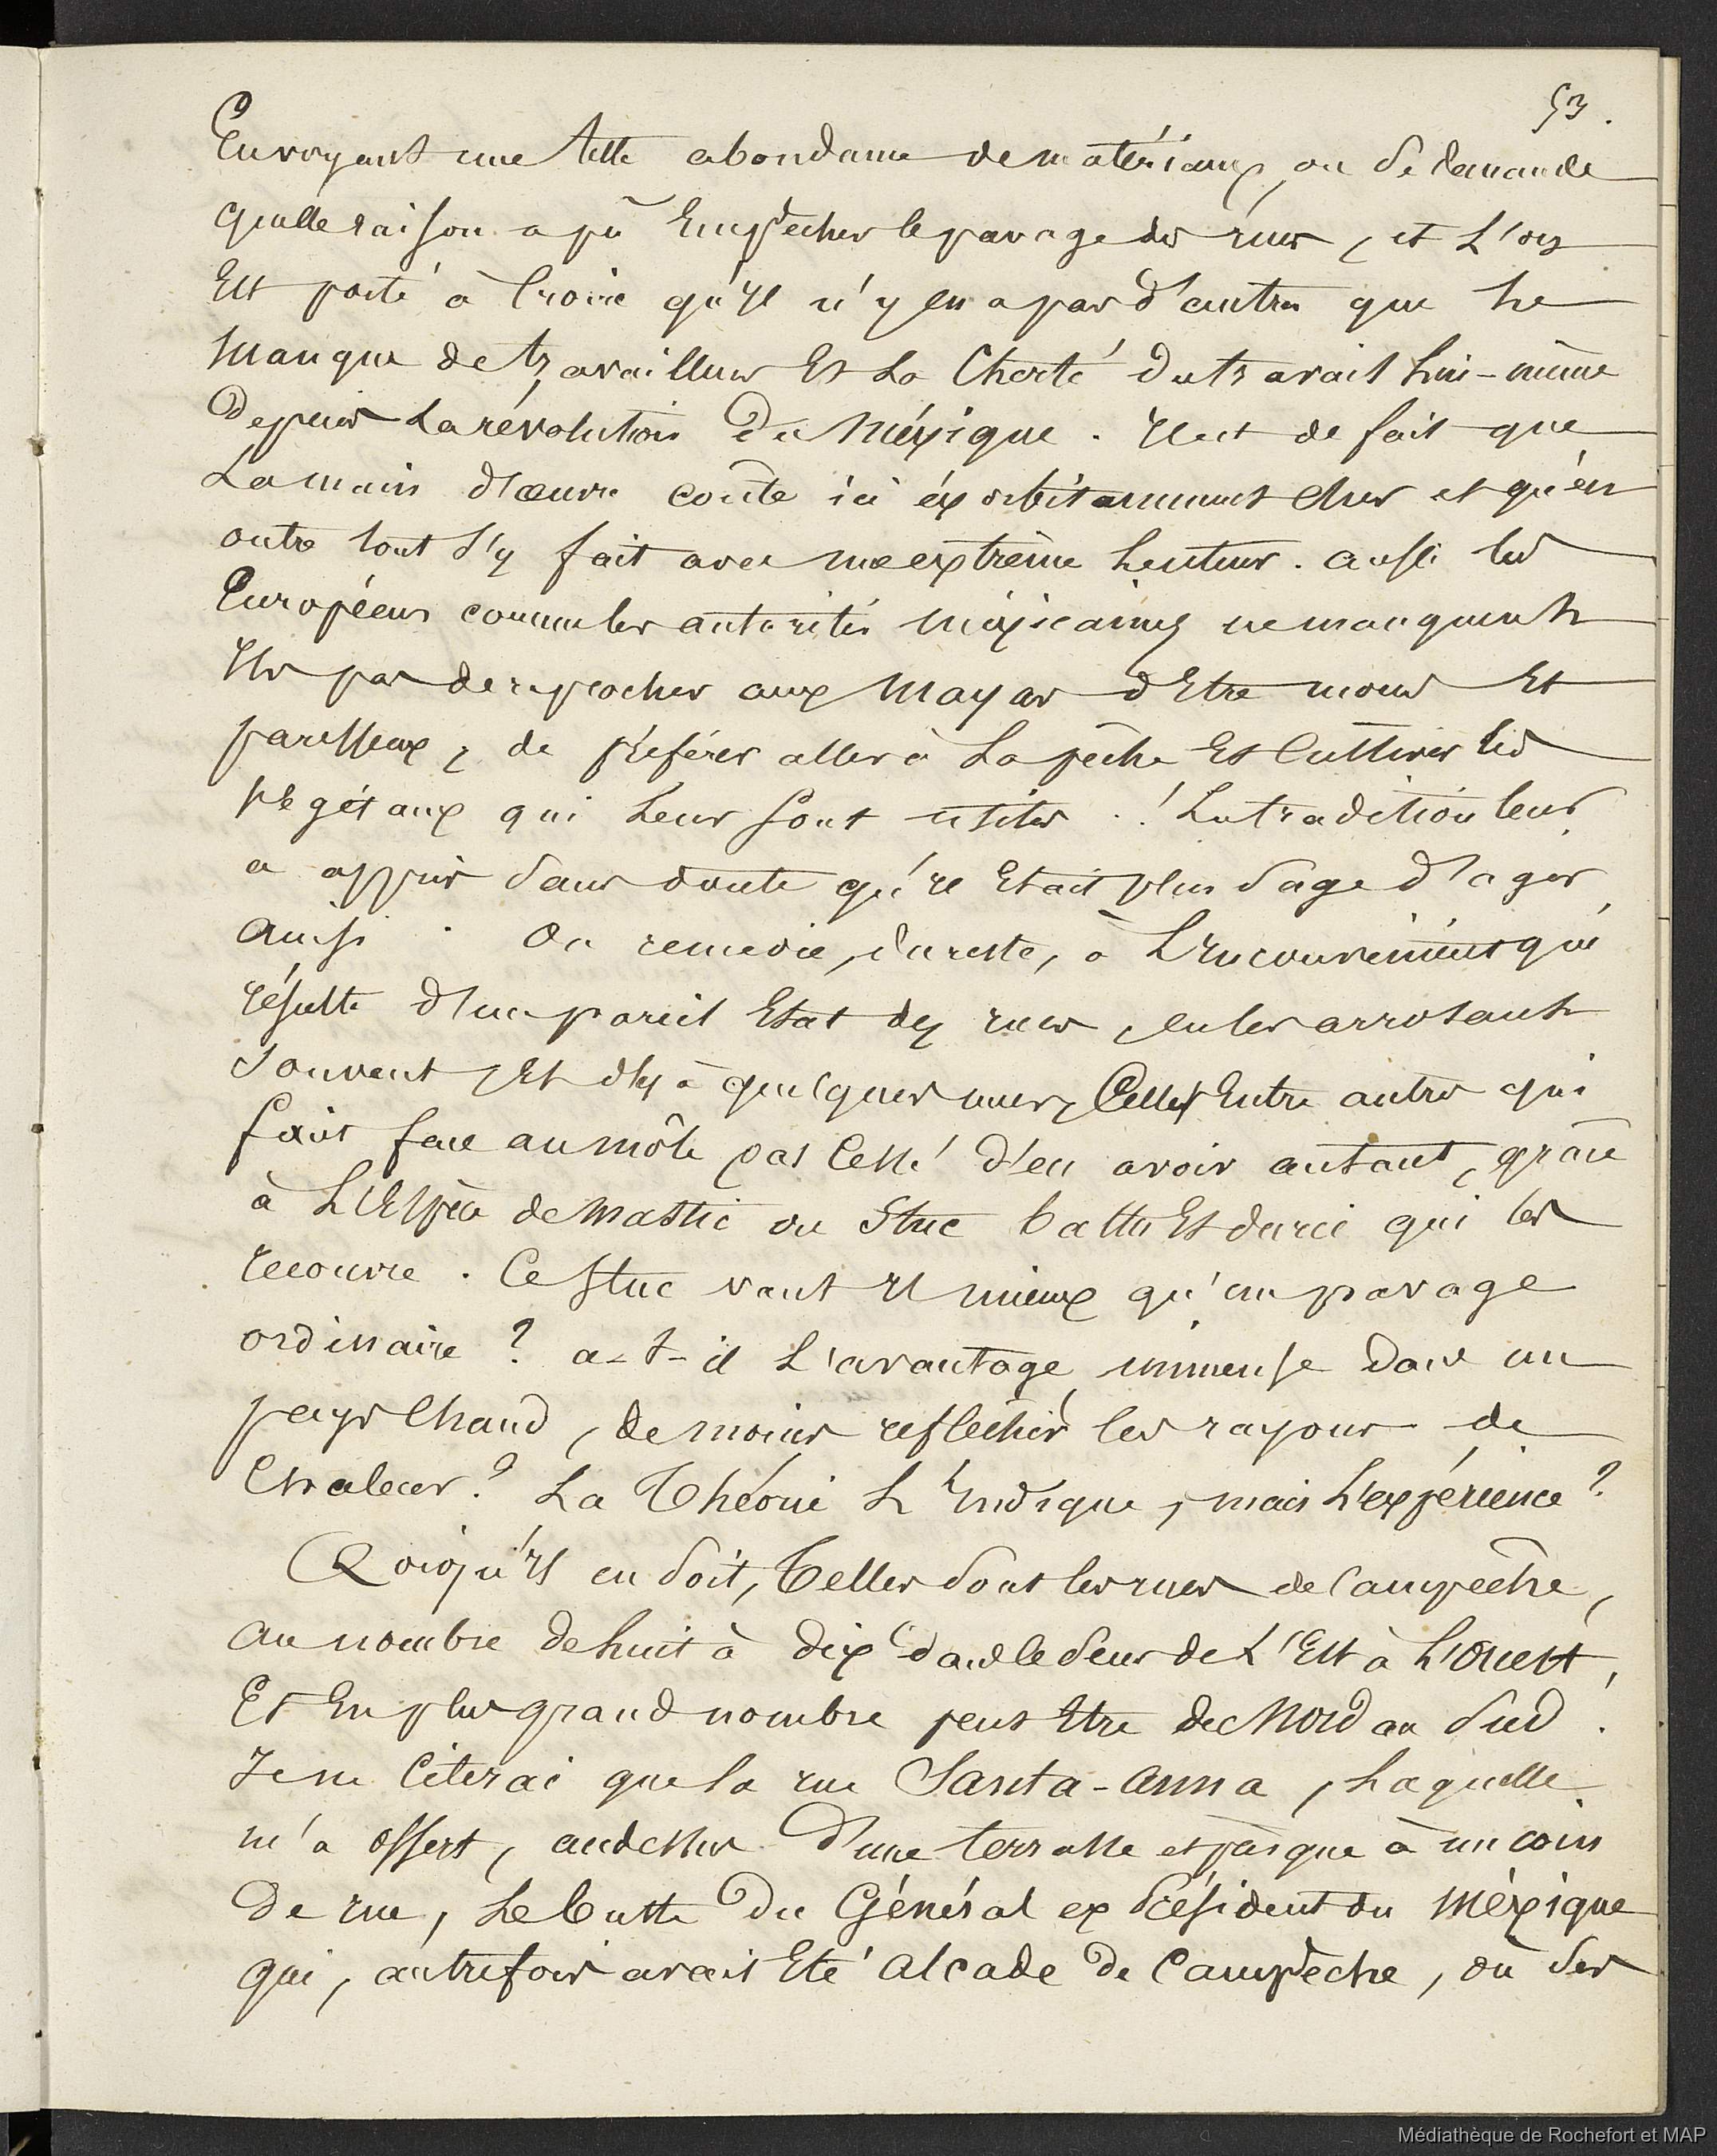 53.
En voyant une telle abondance de matériaux, on se demande
quelle raison a pû Empêcher le pavage des rues, et L'on
Est porté à Croire qu'Il n'y en a pas d'autres que Le
Manque de travailleurs Et La Cherté du travail Lui-même
Depuis La révolution Du Méxique. Il est de fait que
La main d'œuvre coûte ici éxorbitamment cher et qu'en
outre tout s'y fait avec une extrême Lenteur. aussi les
Européens comme les autorités méxicaines ne manquent
Ils pas de reprocher aux Mayas d'Etre mous Et
paresseux, de préférer aller à La pêche Et Cultiver les
végétaux qui Leur sont utiles..! La tradition leur
a appris sans doute qu'il Etait plus sage d'agir
ainsi. On remedie, du reste, à L'Inconvénient qui
résulte d'un pareil Etat des rues, en les arrosant
souvent, Et il y a quelques rues, Celles Entre autres qui
fait face au môle pas Cessé d'en avoir autant, grâce
à L'Espèce de mastic ou Stuc battu Et durci qui les
recouvre. Ce Stuc vaut Il mieux qu'un pavage
ordinaire? a-t-il L'avantage immense dans un
pays Chaud, de moins reflêchir les rayons de
Chaleur? La Théorie L'Indique, mais L'expérience?
Quoiqu'Il en soit, Telles sont les rues de Campêche,
Au nombre de huit à dix dans le sens de L'Est à L'Ouest,
Et En plus grand nombre peut Etre de Nord au Sud.
Je ne Citerai que La rue Santa-Anna, Laquelle
m'a offert, au dessus D'une terrasse et presque à un coin
De rue, Le buste Du Général ex Président du Méxique
qui, autrefois avait Eté Alcade De Campêche, où ses
Médiathèque de Rochefort et MAP